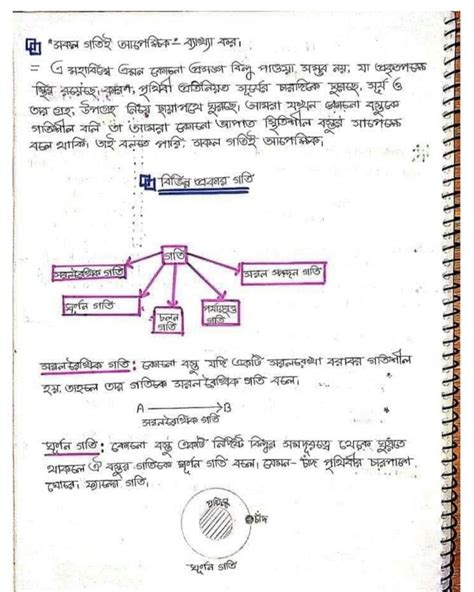 "সকল গতিই আপেক্ষিক"- ব্যাখ্যা কর।
= এ মহাবিশ্বে এমন কোনো প্রসঙ্গ বিন্দু পাওয়া সম্ভব নয়, যা প্রকৃতপক্ষে
স্থির রয়েছে, কারণ, পৃথিবী প্রতিনিয়ত সূর্যের চারদিকে ঘুরছে, সূর্য ও
তার গ্রহ, উপগ্রহ নিয়ে ছায়াপথে ঘুরছে, আমরা যখন কোনো বস্তুকে
গতিশীল বলি তা আমরা কোনো আপাত স্থিতিশীল বস্তুর সাপেক্ষে
বলে থাকি। তাই বলতে পারি, সকল গতিই আপেক্ষিক।
বিভিন্ন প্রকার গতি
গতি
সরলরৈখিক গতি
সরল স্পন্দন গতি
ঘূর্ণন গতি
চলন গতি
পর্যাবৃত্ত গতি
সরলরৈখিক গতি : কোনো বস্তু যদি একটি সরলরেখা বরাবর গতিশীল
হয়, তাহলে তার গতিকে সরলরৈখিক গতি বলে।
A B
সরলরৈখিক গতি
ঘূর্ণন গতি : কোনো বস্তু একটি নির্দিষ্ট বিন্দুর সমদূরত্বে থেকে ঘুরতে
থাকলে ঐ বস্তুর গতিকে ঘূর্ণন গতি বলে। যেমন- চাঁদ পৃথিবীর চারপাশে
ঘোরে। ফ্যানের গতি,
পৃথিবী
চাঁদ
ঘূর্ণন গতি